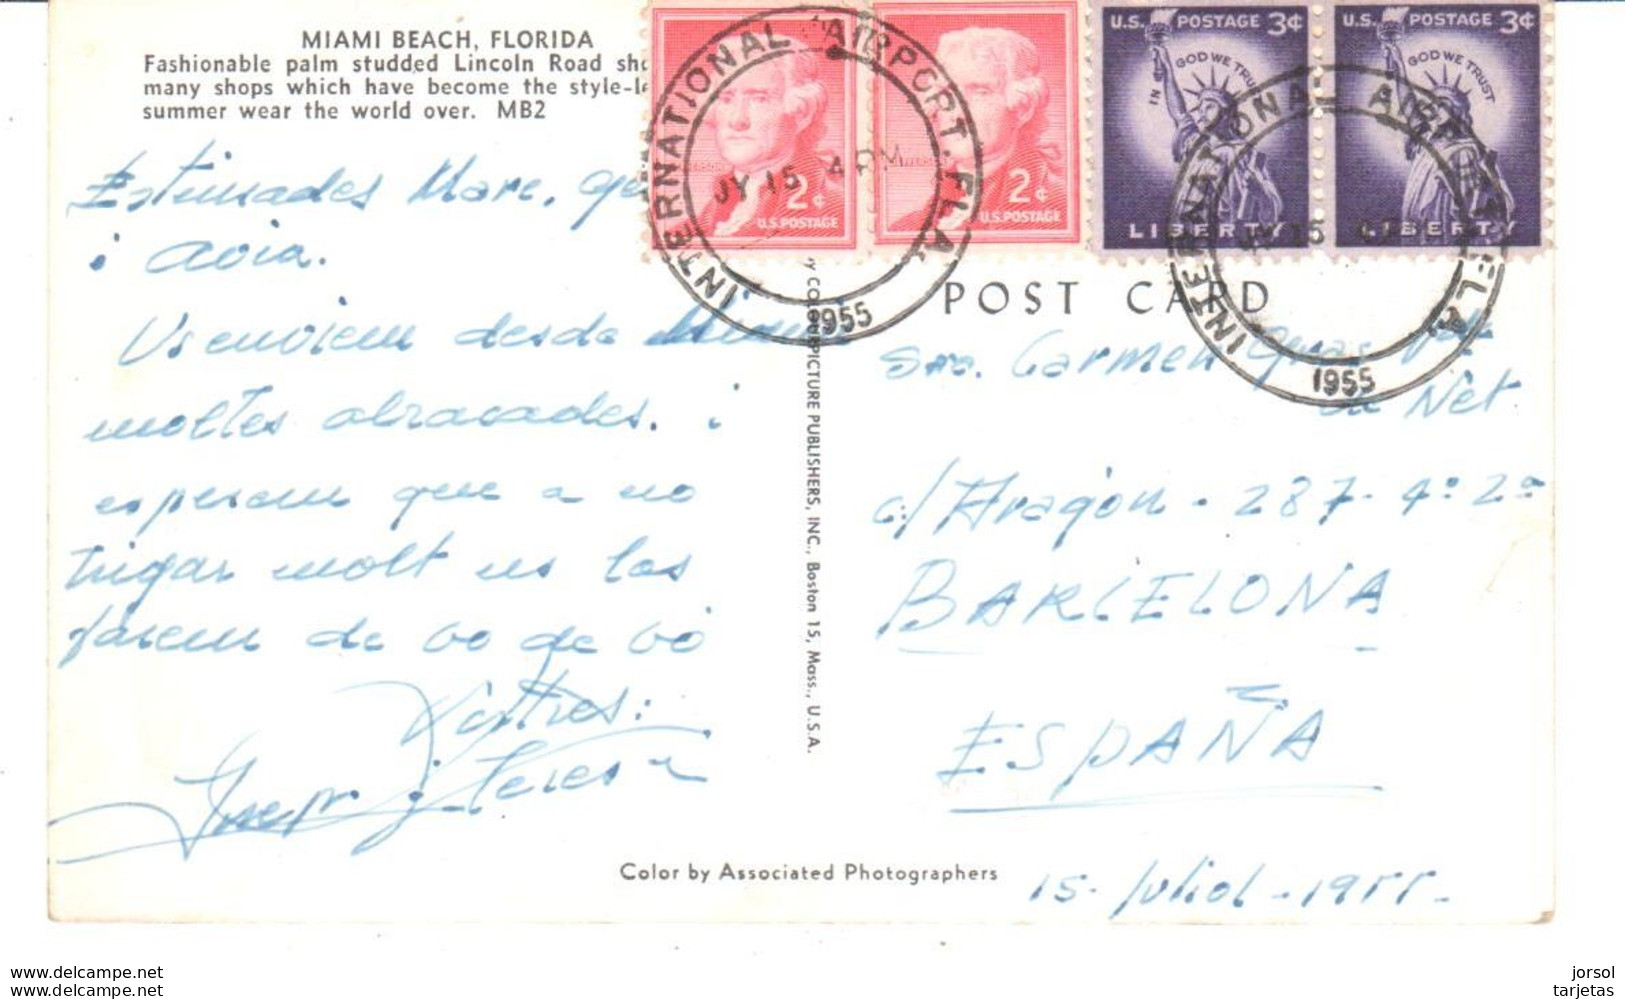 MIAMI BEACH, FLORIDA
Fashionable palm studded Lincoln Road
many shops which have become the
summer wear the world over. MB2
Estimades Mare,
i avia.
Us enviem desde Miami
moltes abraçades. i
esperem que a no
trigar molt us las
farem de bo de bó
Vostres:
Josep i Teresa
U.S. POSTAGE 3¢
IN GOD WE TRUST
LIBERTY
U.S. POSTAGE 3¢
GOD WE TRUST
LIBERTY
2¢
U.S. POSTAGE
2¢
U.S. POSTAGE
INTERNATIONAL AIRPORT. FLA.
JY 15 4 PM
1955
INTERNATIONAL AIRPORT. FLA.
JY 15
1955
POST CARD
COLOURPICTURE PUBLISHERS, INC., Boston 15, Mass., U.S.A.
Sra. Carmen
de Nèt
c/ Aragón - 287 - 4º 2ª
BARCELONA
ESPAÑA
15 - Juliol - 1955 -
Color by Associated Photographers
www.delcampe.net
www.delcampe.net
jorsol
tarjetas